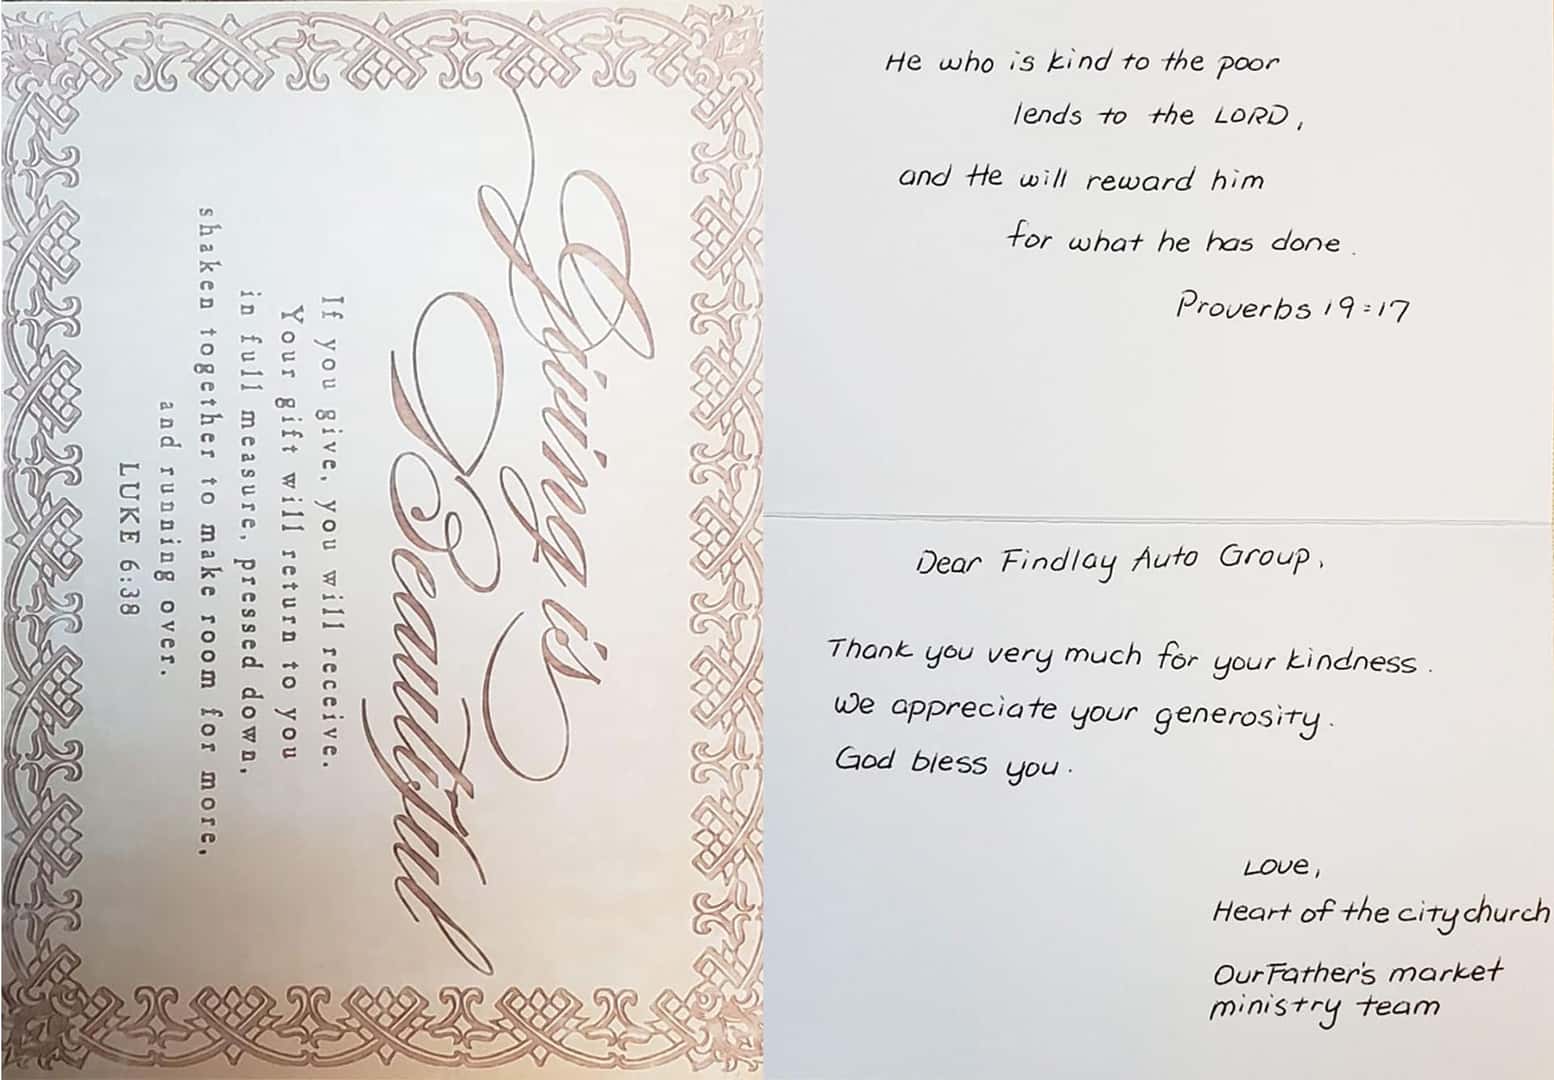 Giving is
Beautiful
If you give, you will receive.
Your gift will return to you
in full measure, pressed down,
shaken together to make room for more,
and running over.
LUKE 6:38
He who is kind to the poor
lends to the LORD,
and He will reward him
for what he has done.
Proverbs 19:17
Dear Findlay Auto Group,
Thank you very much for your kindness.
We appreciate your generosity.
God bless you.
Love,
Heart of the city church
Our Father's market
ministry team